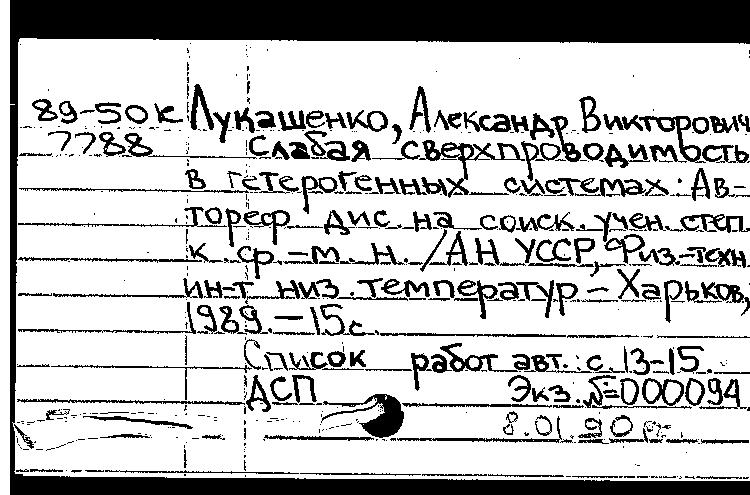 89-50к Лукашенко, Александр Викторович
7788 Слабая сверхпроводимость
в гетерогенных системах: Ав-
тореф дис. на соиск. учен. степ.
к. ф.-м. н. /АН УССР, Физ.-техн
ин-т низ. температур – Харьков,
1989. – 15с.
Список работ авт.: с. 13-15.
ДСП. Экз. №000094
8.01.90